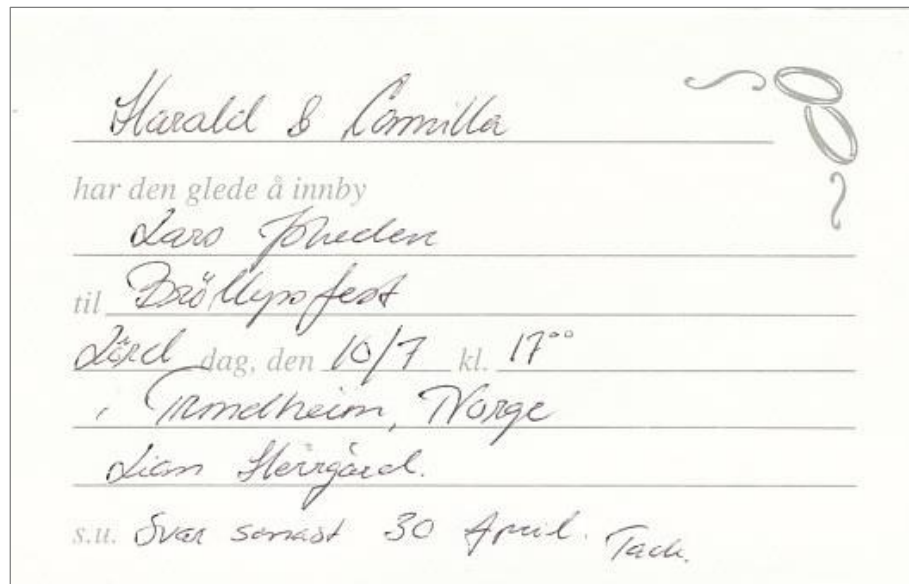 Harald & Camilla
har den glede å innby
Lars
til Bröllopsfest
Lörd dag, den 10/7 kl. 17⁰⁰
i Trondheim, Norge
Lian Herrgård.
s.u. Svar senast 30 April. Tack.